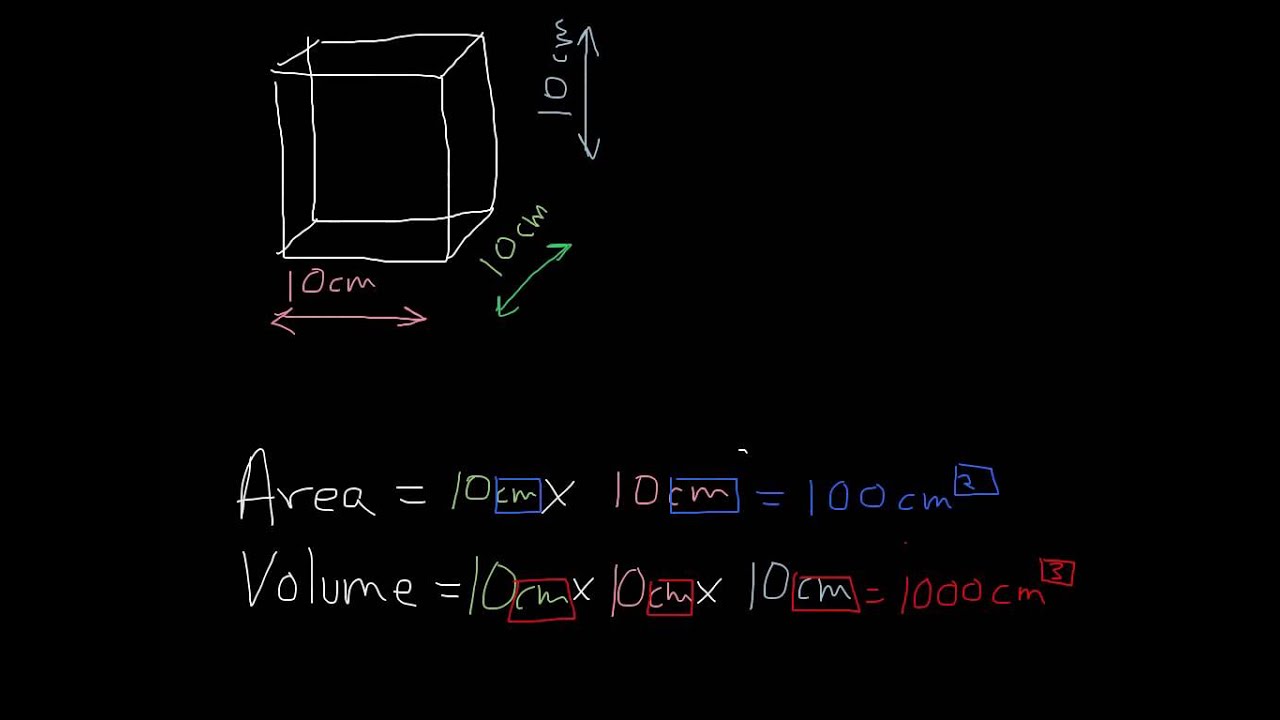 10cm
10cm
10cm
Area = 10cm x 10cm = 100cm²
Volume = 10cm x 10cm x 10cm = 1000cm³